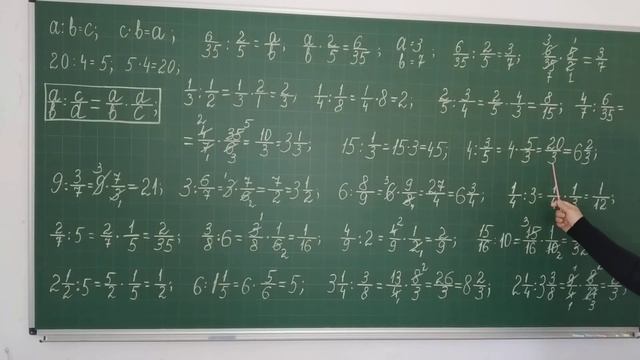 a:b=c; c·b=a; 6/35 : 2/5 = a/b; a/b · 2/5 = 6/35; a=3 b=7; 6/35 : 2/5 = 3/7; 6/35 · 5/2 = 3/7
20:4=5; 5·4=20;
a/b : c/d = a/b · d/c; 1/3 : 1/2 = 1/3 · 2/1 = 2/3; 1/4 : 1/8 = 1/4 · 8 = 2; 2/5 : 3/4 = 2/5 · 4/3 = 8/15; 4/7 : 6/35 =
= 4/7 · 35/6 = 10/3 = 3 1/3; 15 : 1/3 = 15·3 = 45; 4 : 3/5 = 4 · 5/3 = 20/3 = 6 2/3;
9 : 3/7 = 9 · 7/3 = 21; 3 : 6/7 = 3 · 7/6 = 7/2 = 3 1/2; 6 : 8/9 = 6 · 9/8 = 27/4 = 6 3/4; 1/4 : 3 = 1/4 · 1/3 = 1/12;
2/7 : 5 = 2/7 · 1/5 = 2/35; 3/8 : 6 = 3/8 · 1/6 = 1/16; 4/9 : 2 = 4/9 · 1/2 = 2/9; 15/16 : 10 = 15/16 · 1/10 = /32
2 1/2 : 5 = 5/2 · 1/5 = 1/2; 6 : 1 1/5 = 6 · 5/6 = 5; 3 1/4 : 3/8 = 13/4 · 8/3 = 26/3 = 8 2/3; 2 1/4 : 3 3/8 = 9/4 · 8/27 = 2/3;